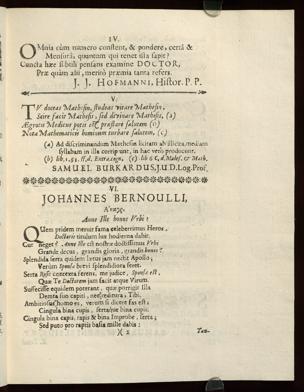 IV.
OMnia cùm numero constent, & pondere, certâ &
Mensurâ, quantum qui tenet illa sapit?
Cuncta hæc sibili pensans examine DOCTOR,
Præ quàm alii, meritò præmia tanta refers.
J. J. HOFMANNI, Histor. P. P.
V.
TV doceas Mathesin, studeas vitare Mathesin,
Scire facit Mathesis, sed divinare Mathesis, (a)
Ægroto Medicus potis est præstare salutem (b)
Nota Mathematicis hominum turbare salutem, (c)
(a) Ad discriminandum Mathesin licitam ab illicita, mediam
syllabam in illa corripiunt, in hac verò producunt.
(b) lib. 1, §1. ff. d. Extra. cogn, (c) lib 6 C, d. Malef. & Math.
SAMUEL BURKARDUS, J.U.D. Log. Prof.
VI.
JOHANNES BERNOULLI,
Anne Ille bonus Vrbi?
QUem pridem meruit fama celeberrimus Heros,
Doctoris titulum lux hodierna dabit.
Cur neget? Anne Ille est nostræ doctissimus Vrbi
Grande decus, grandis gloria, grandis honor?
Splendida serta quidem lætus jam nectit Apollo;
Verùm Sponsa brevi splendidiora feret.
Serta Rosis concerta ferens, me judice, Sponsa est,
Quæ Te Doctorem jam facit atque Virum.
Suffecisse equidem poterant, quæ porrigit Illa
Demta suo capiti, nexáque mitra, Tibi.
Ambitiosus homo es, verum si dicere fas est:
Cingula bina cupis, serta\que bina cupis.
Cingula bina capis, rapis & bina Improbe, serta;
Sed puto pro raptis basia mille dabis:
X 2
Tan-